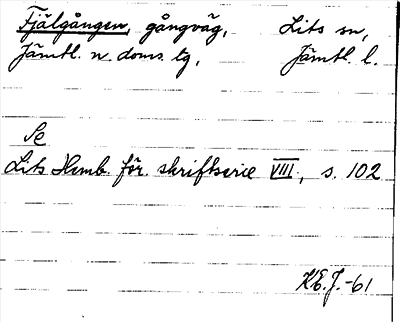 Fjälgången, gångväg, Lits sn,
Jämtl. n. doms. tg, Jämtl. l.
Se
Lits Hemb. för. skriftserie VIII, s. 102
K.E.J.-61